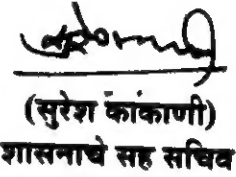 (सुरेश कांकाणी)
शासनाचे सह सचिव